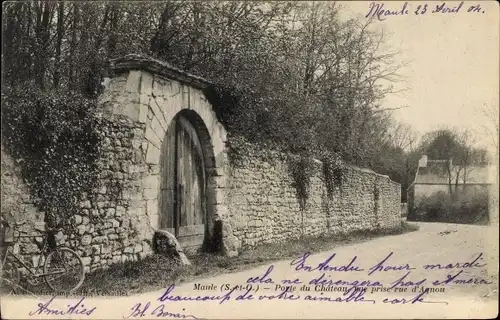 Maule 23 Avril 04.
Maule (S.-et-O.) — Porte du Château, rue d'Agnou
Entendu pour mardi
Cela ne dérangera pas et merci
beaucoup de votre aimable carte
une prise
Amitiés